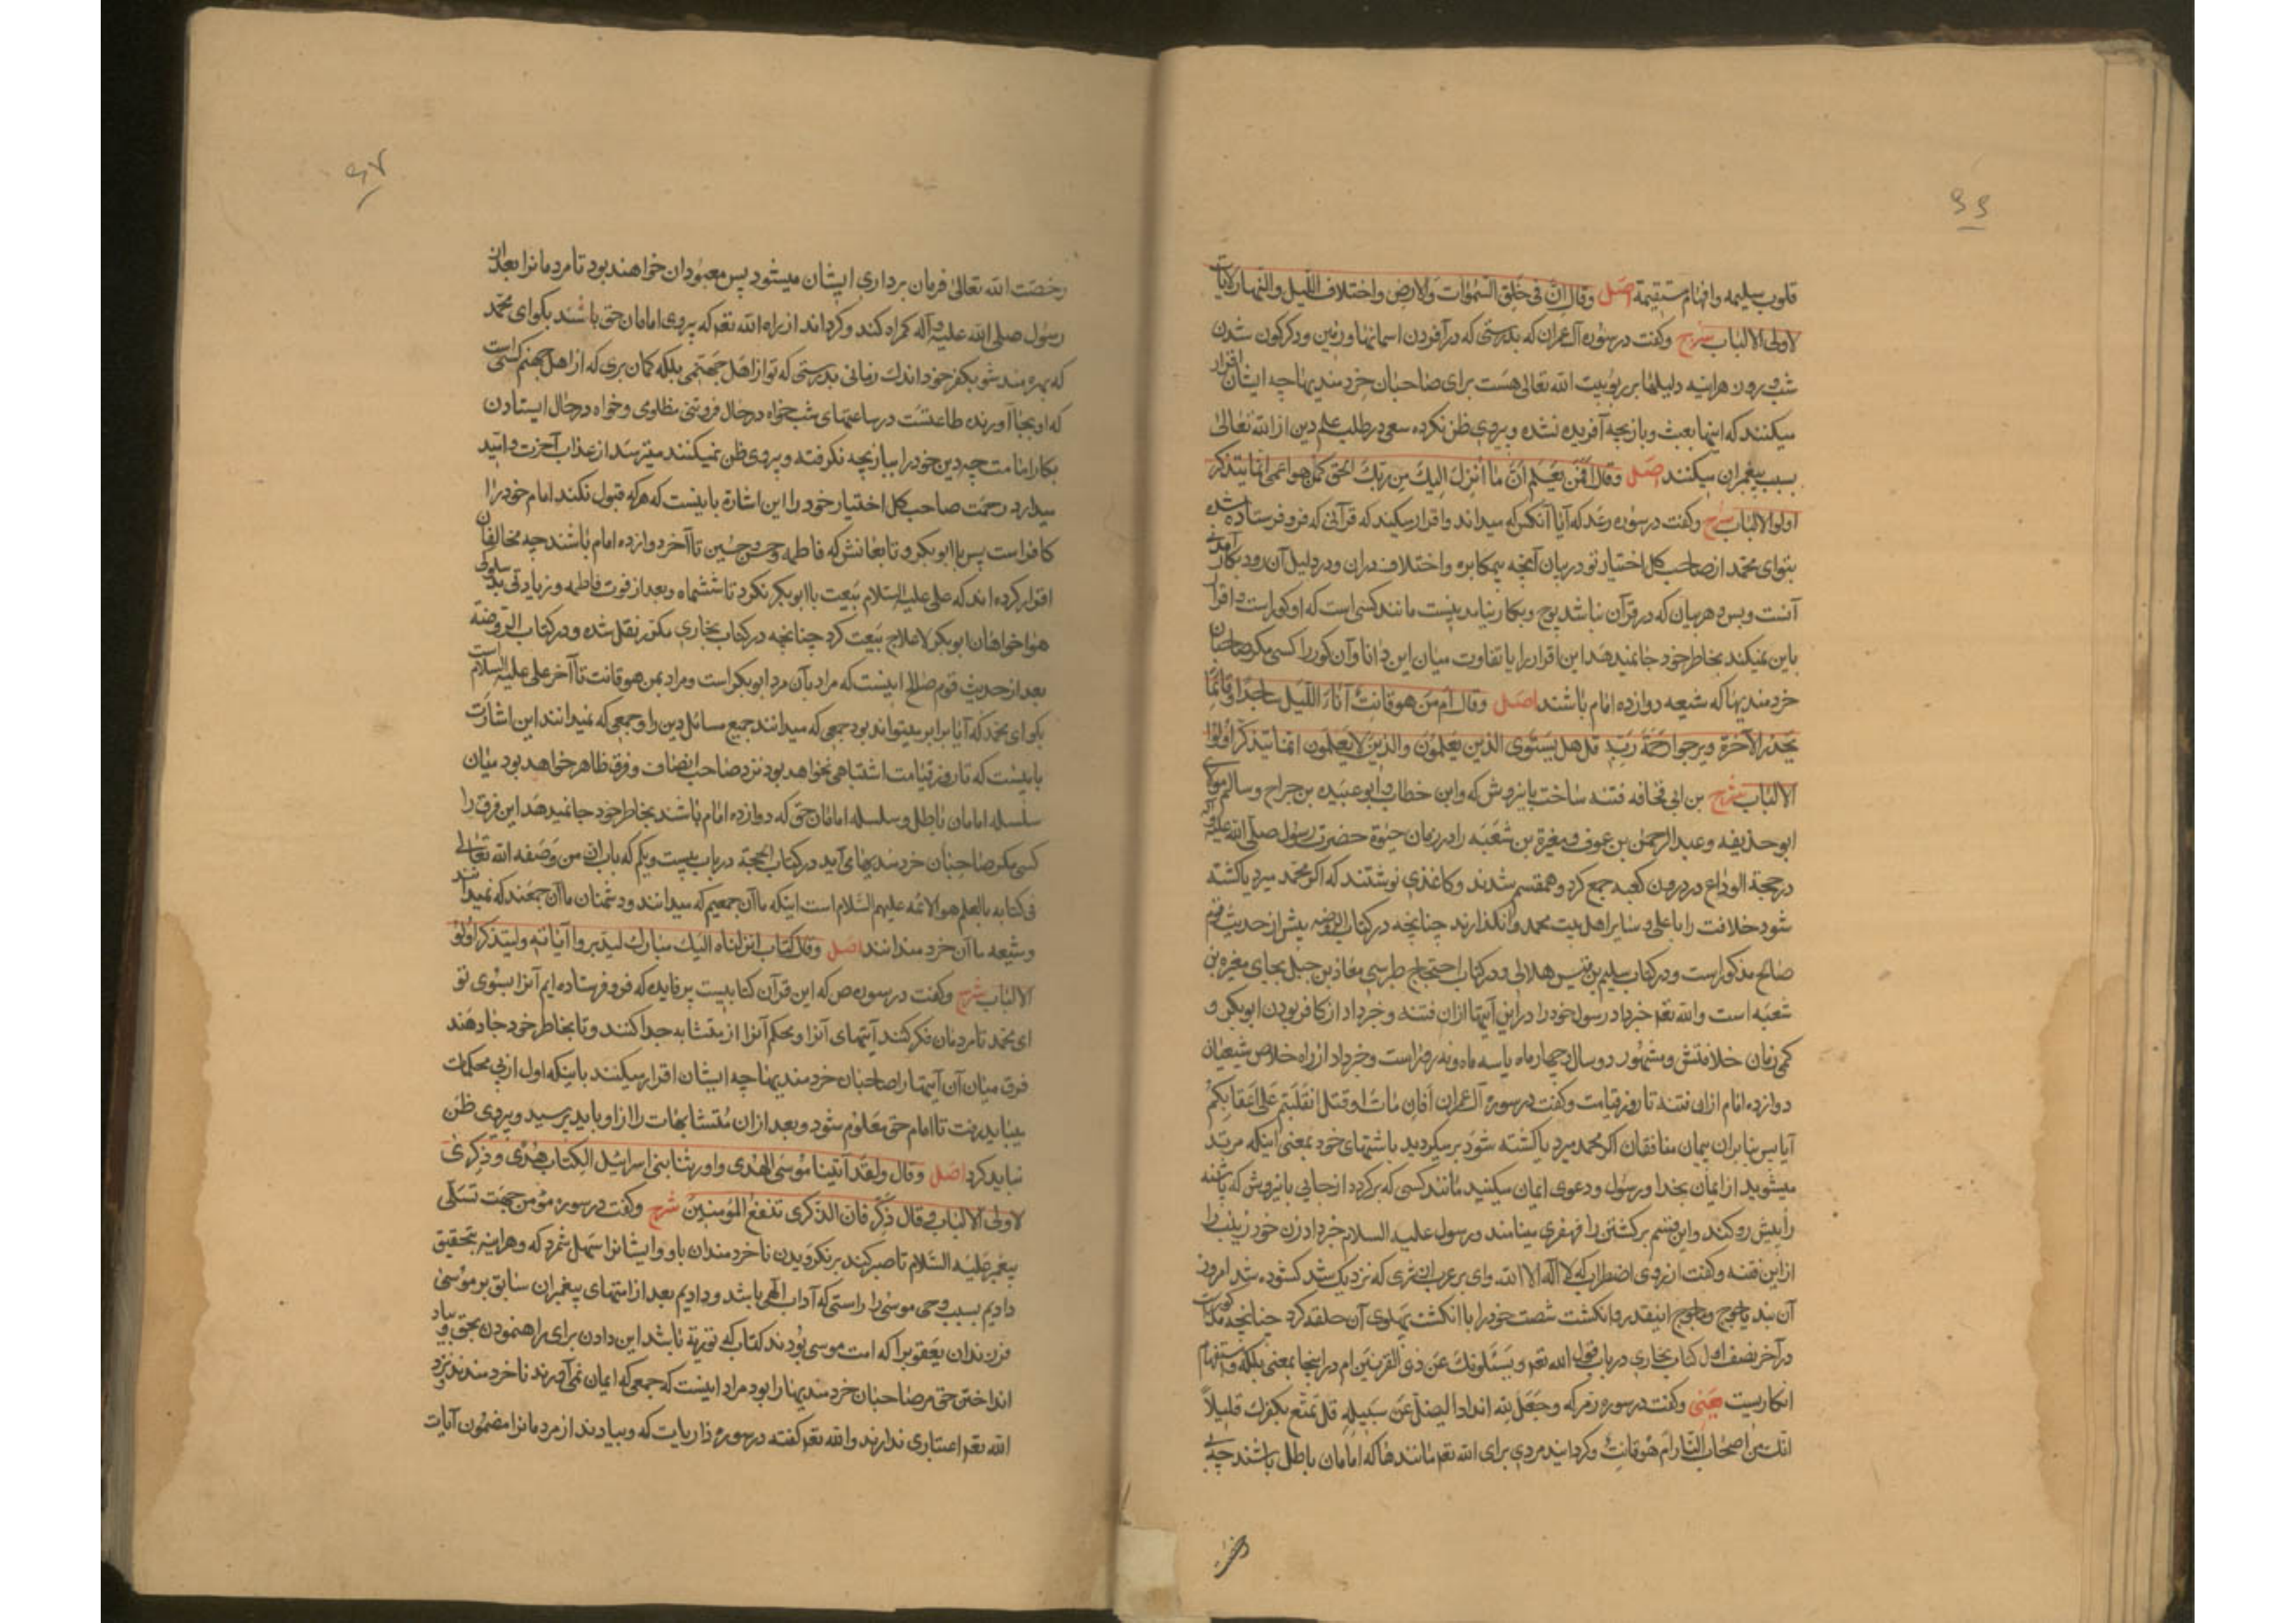 ٦٦
قلوب سلیمه وافهام مستقیمة اصل وقال انّ فی خلق السموات والارض واختلاف اللیل والنهار لآیات
لاولی الالباب شرح وکفت در سوره آل عمران که بدرستی که در آفرودن اسمانها وزمین ودکرکون شدن
شب وروز هراینه دلیلها بر ربوبیت الله تعالی هست برای صاحبان خردمندیها چه ایشان اقرار
میکنند که اینها بعبث وبازیچه آفریده نشده وپیروی ظن نکرده سعی در طلب علم دین از الله تعالی
بسبب پیغمبران میکنند اصل وقال افمن یعلم انّ ما انزل الیک من ربک الحق کمن هو اعمی انما یتذکر
اولوا الالباب شرح وکفت در سوره رعد که آیا آنکس که میداند واقرار میکند که قرآنی که فرو فرستاده شده
بتو ای محمد از صاحب کل اختیار تو در بیان آنچه بی مکابره واختلاف دران ودر دلیل آن رود بکار آمدنی
آنست وبس وهر بیان که در قرآن نباشد پوچ وبکار نیامدنیست مانند کسی است که او کور است واقرار
باین نمیکند بخاطر خود جا نمیدهد این اقرار را یا تفاوت میان این دانا وآن کور را کسی مکر صاحبان
خردمندیها که شیعه دوازده امام باشند اصل وقال امّن هو قانت آناء اللیل ساجدا وقائما
یحذر الآخرة ویرجوا رحمة ربه قل هل یستوی الذین یعلمون والذین لا یعلمون انما یتذکر اولوا
الالباب شرح بن ابی قحافه فتنه ساخت باین روش که وابن خطاب وابو عبیده بن جراح وسالم مولای
ابو حذیفه وعبد الرحمن بن عوف ومغیرة بن شعبه را در زمان حیوة حضرت رسول صلی الله علیه وآله
در حجة الوداع در درون کعبه جمع کرد وهمقسم شدند وکاغذی نوشتند که اکر محمد میرد یا کشته
شود خلافت را با علی وسایر اهل بیت محمد وانکذارند چنانچه در کتاب الروضه پیش از حدیث قوم
صالح مذکور است ودر کتاب سلیم بن قیس هلالی ودر کتاب احتجاج طبرسی معاذ بن جبل بجای مغیره بن
شعبه است والله تعم خبر داد رسول خود را در این آیتها ازان فتنه وخبر داد از کافر بودن ابوبکر و
کمی زمان خلافتش ومشهور دو سال وچهار ماه یا سه ماه ونه روز است وخبر داد از راه خلاص شیعیان
دوازده امام ازان فتنه تا روز قیامت وکفت در سوره آل عمران افان مات او قتل انقلبتم علی اعقابکم
آیا پس بنا بران پیمان منافقان اکر محمد میرد یا کشته شود برمیکردید باشنهای خود بمعنی اینکه مرتد
میشوید از ایمان بخدا ورسول ودعوی ایمان میکنید مانند کسی که برکردد از جایی باین روش که پاشنه
را پیش رو کند واین قسم برکشتن را قهقری مینامند ورسول علیه السلام خبر داد زن خود زینب را
از این فتنه وکفت از روی اضطراب که لا اله الا الله وای بر عرب از شری که نزدیک شد کشوده شد امروز
آن بند یاجوج وماجوج اینقدر وانکشت شصت خود را با انکشت پهلوی آن حلقه کرد چنانچه مذکور است
در آخر نصف اول کتاب بخاری در باب قول الله تعم ویسئلونک عن ذی القرنین ام در اینجا بمعنی بلکه واستفهام
انکاریست یعنی وکفت در سوره زمر که وجعل لله اندادا لیضل عن سبیله قل تمتع بکفرک قلیلاً
انک من اصحاب النار ام هو قانت وکردانید مردی برای الله تعم مانندها که امامان باطل باشند چه بی
رخصت
٦٧
رخصت الله تعالی فرمان برداری ایشان میشود پس معبودان خواهند بود تا مردمانرا بعد از
رسول صلی الله علیه وآله کمراه کند وکرداند از راه الله تعم که پیروی امامان حق باشد بکو ای محمد
که بهره مند شو بکفر خود اندک زمانی بدرستی که تو از اهل جهنمی بلکه کمان بری که از اهل جهنم کسی است
که او بجا آورنده طاعتست در ساعتهای شب خواه در حال فروتنی مظلومی وخواه در حال ایستادن
بکار امامت چه دین خود را ببازیچه نکرفته وپیروی ظن نمیکنند میترسد از عذاب آخرت وامید
میدارد رحمت صاحب کل اختیار خود را این اشارة باینست که هر که قبول نکند امام خود را
کافر است پس با ابوبکر وتابعانش که فاطمه وحسن وحسین تا آخر دوازده امام باشند چه مخالفان
اقرار کرده اند که علی علیه السلام بیعت با ابوبکر نکرد تا ششماه وبعد از فوت فاطمه وزیادتی بدسلوکی
هواخواهان ابوبکر لاعلاج بیعت کرد چنانچه در کتاب بخاری مکرر نقل شده ودر کتاب الروضة
بعد از حدیث قوم صالح اینست که مراد بآن مرد ابوبکر است ومراد بمن هو قانت تا آخر علی علیه السلام است
بکو ای محمد که آیا برابر میتواند بود جمعی که میدانند جمیع مسائل دین را وجمعی که نمیدانند این اشارت
باینست که تا روز قیامت اشتباهی نخواهد بود نزد صاحب انصاف وفرق ظاهر خواهد بود میان
سلسله امامان باطل وسلسله امامان حق که دوازده امام باشند بخاطر خود جا نمیدهد این فرق را
کسی مکر صاحبان خردمندیها می آید در کتاب الحجة در باب بیست ویکم که باب ان من وصفه الله تعالی
فی کتابه بالعلم هو الائمه علیهم السلام است اینکه ما آن جمعیم که میدانند ودشمنان ما آن جمعند که نمیدانند
وشیعه ما آن خردمندانند اصل وقال کتاب انزلناه الیک مبارک لیدبروا آیاته ولیتذکر اولو
الالباب شرح وکفت در سوره ص که این قرآن کتابیست پر فایده که فرو فرستاده ایم آنرا بسوی تو
ای محمد تا مردمان فکر کنند آیتهای آنرا ومحکم آنرا از متشابه جدا کنند وتا بخاطر خود جا دهند
فرق میان آن آیتها را صاحبان خردمندیها چه ایشان اقرار میکنند باینکه اول از پی محکمات
میباید رفت تا امام حق معلوم شود وبعد ازان متشابهات را ازو باید پرسید وپیروی ظن
نباید کرد اصل وقال ولقد آتینا موسی الهدی واورثنا بنی اسرائیل الکتاب هدی وذکری
لاولی الالباب وقال وذکّر فان الذکری تنفع المؤمنین شرح وکفت در سوره مؤمن جهت تسلی
پیغمبر علیه السلام تا صبر کند بر نکرویدن ناخردمندان باو وایشانرا سهل شمرد که وهراینه بتحقیق
دادیم بسبب وحی موسی را راستی که آداب الهی باشد ودادیم بعد از امتهای پیغمبران سابق بر موسی
فرزندان یعقوب را که امت موسی بودند کتاب که توریة باشد این دادن برای راهنمودن بحق وبیاد
انداختن حق مر صاحبان خردمندیها را بود مراد اینست که جمعی که ایمان نمی آورند ناخردمندند ونزد
الله تعم اعتباری ندارند والله تعم کفته در سوره ذاریات که وبیاد انداز مردمانرا مضمون آیات